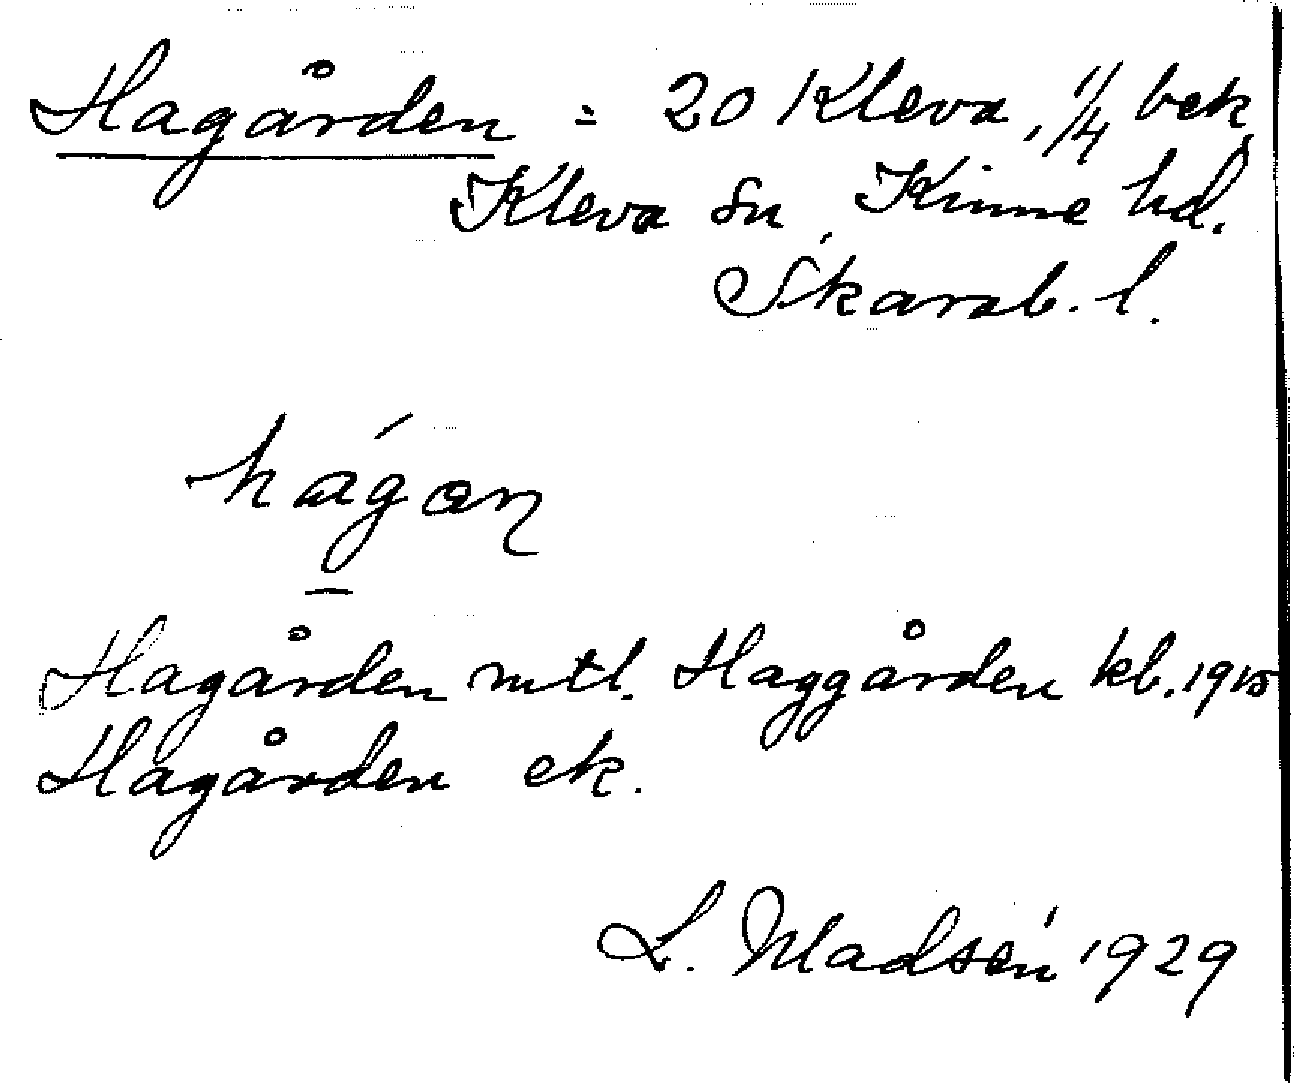 Hagården = 20 Kleva, 1/4 bek
Kleva sn, Kinne hd.
Skarab. l.
hágan
Hagården mtl. Haggården kb. 1915
Hagården ek.
L. Madsén 1929